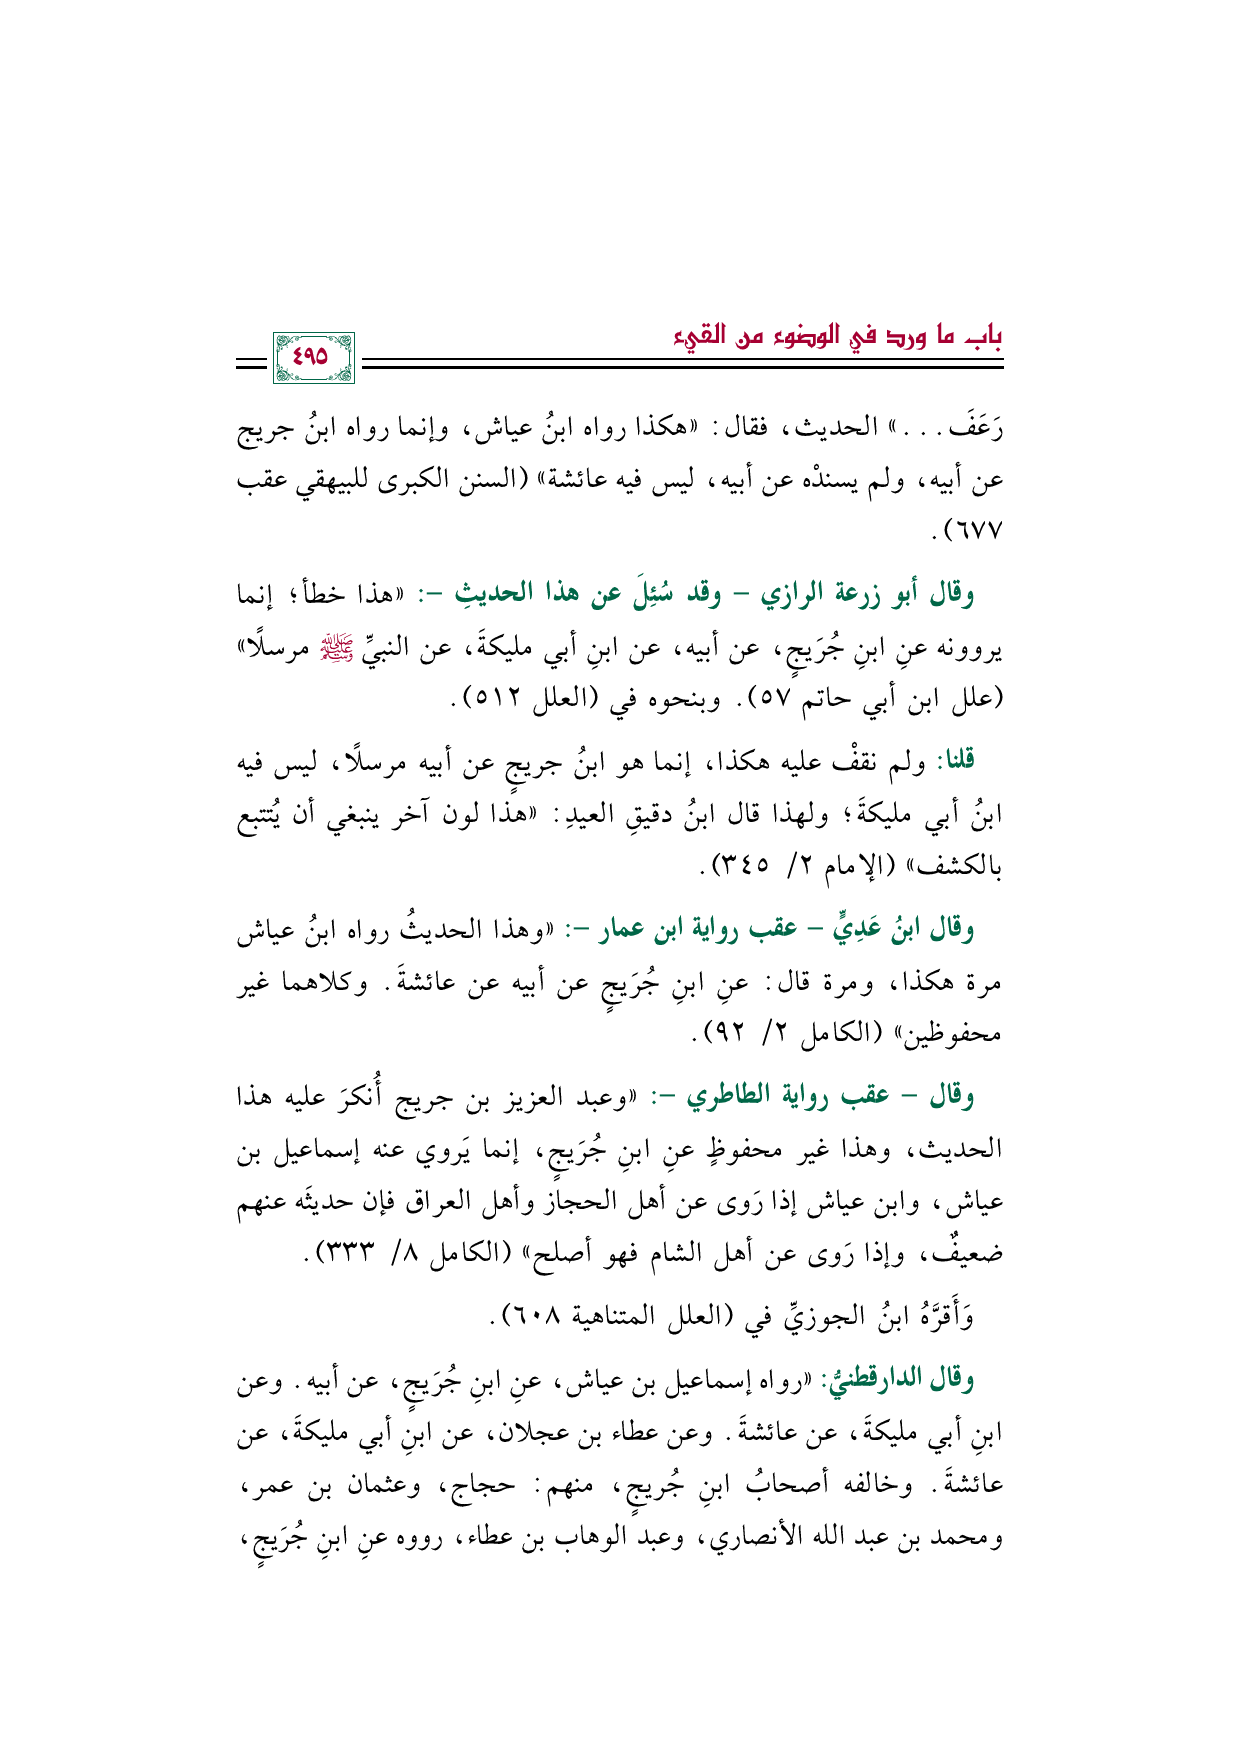 باب ما ورد في الوضوء من القيء
٤٩٥
رَعَفَ...» الحديث، فقال: «هكذا رواه ابنُ عياش، وإنما رواه ابنُ جريج
عن أبيه، ولم يسندْه عن أبيه، ليس فيه عائشة» (السنن الكبرى للبيهقي عقب
٦٧٧).
وقال أبو زرعة الرازي – وقد سُئِلَ عن هذا الحديثِ –: «هذا خطأ؛ إنما
يروونه عنِ ابنِ جُرَيجٍ، عن أبيه، عن ابنِ أبي مليكةَ، عن النبيِّ ﷺ مرسلًا»
(علل ابن أبي حاتم ٥٧). وبنحوه في (العلل ٥١٢).
قلنا: ولم نقفْ عليه هكذا، إنما هو ابنُ جريجٍ عن أبيه مرسلًا، ليس فيه
ابنُ أبي مليكةَ؛ ولهذا قال ابنُ دقيقِ العيدِ: «هذا لون آخر ينبغي أن يُتتبع
بالكشف» (الإمام ٢/ ٣٤٥).
وقال ابنُ عَدِيٍّ – عقب رواية ابن عمار –: «وهذا الحديثُ رواه ابنُ عياش
مرة هكذا، ومرة قال: عنِ ابنِ جُرَيجٍ عن أبيه عن عائشةَ. وكلاهما غير
محفوظين» (الكامل ٢/ ٩٢).
وقال – عقب رواية الطاطري –: «وعبد العزيز بن جريج أُنكرَ عليه هذا
الحديث، وهذا غير محفوظٍ عنِ ابنِ جُرَيجٍ، إنما يَروي عنه إسماعيل بن
عياش، وابن عياش إذا رَوى عن أهل الحجاز وأهل العراق فإن حديثَه عنهم
ضعيفٌ، وإذا رَوى عن أهل الشام فهو أصلح» (الكامل ٨/ ٣٣٣).
وَأَقرَّهُ ابنُ الجوزيِّ في (العلل المتناهية ٦٠٨).
وقال الدارقطنيُّ: «رواه إسماعيل بن عياش، عنِ ابنِ جُرَيجٍ، عن أبيه. وعن
ابنِ أبي مليكةَ، عن عائشةَ. وعن عطاء بن عجلان، عن ابنِ أبي مليكةَ، عن
عائشةَ. وخالفه أصحابُ ابنِ جُريجٍ، منهم: حجاج، وعثمان بن عمر،
ومحمد بن عبد الله الأنصاري، وعبد الوهاب بن عطاء، رووه عنِ ابنِ جُرَيجٍ،